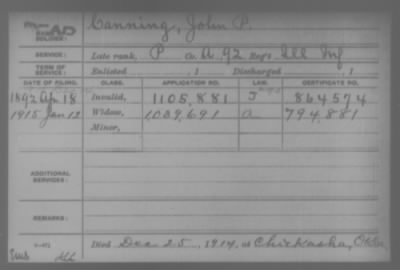 NAME OF SOLDIER: Canning, John P.
SERVICE: Late rank, P Co. A, 92 Reg't Ill Inf
TERM OF SERVICE: Enlisted , 1 Discharged , 1
DATE OF FILING. CLASS. APPLICATION NO. LAW. CERTIFICATE NO.
1892 Apr 18 Invalid, 1105,881 J 864574
1915 Jan 12 Widow, 1039,691 a 794,881
Minor,
ADDITIONAL SERVICES:
REMARKS:
Died Dec 25, 1914, at Chickasha, Okla
Ill